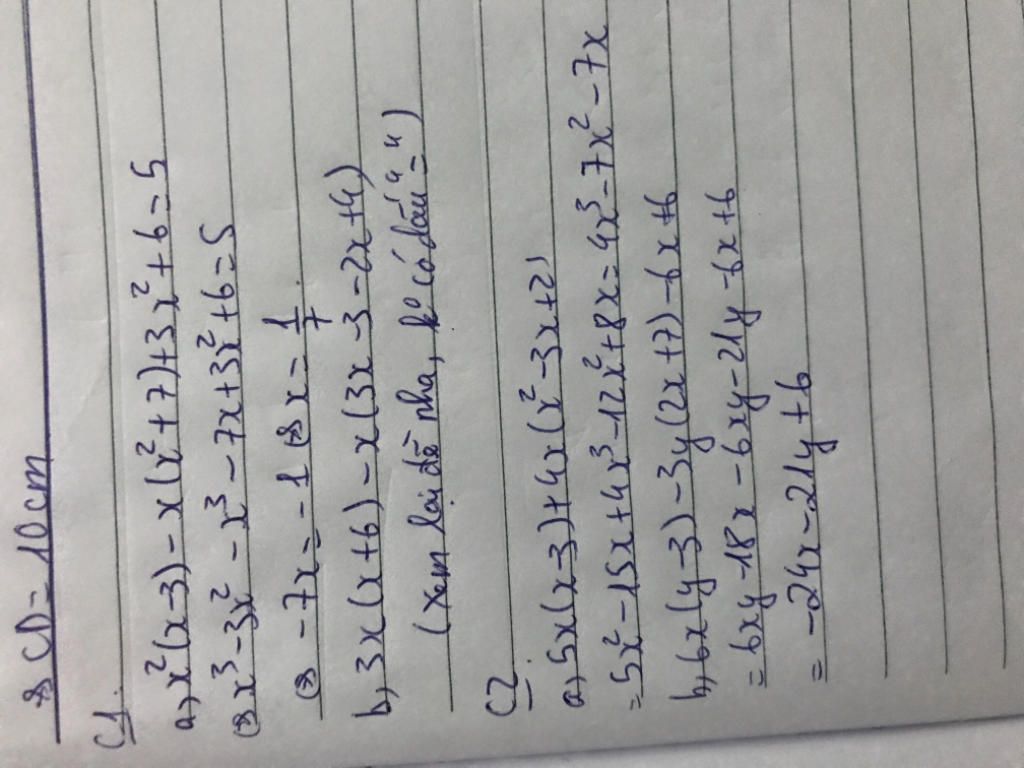 ⇔ CD = 10cm
C1.
a, x²(x-3) - x(x²+7) + 3x² + 6 = 5
⇔ x³ - 3x² - x³ - 7x + 3x² + 6 = 5
⇔ -7x = -1 ⇔ x = 1/7
b, 3x(x+6) - x(3x-3-2x+4)
(xem lại đề nha, k⁰ có dấu "=")
C2.
a, 5x(x-3) + 4x(x²-3x+2)
= 5x² - 15x + 4x³ - 12x² + 8x = 4x³ - 7x² - 7x
b, 6x(y-3) - 3y(2x+7) - 6x + 6
= 6xy - 18x - 6xy - 21y - 6x + 6
= -24x - 21y + 6